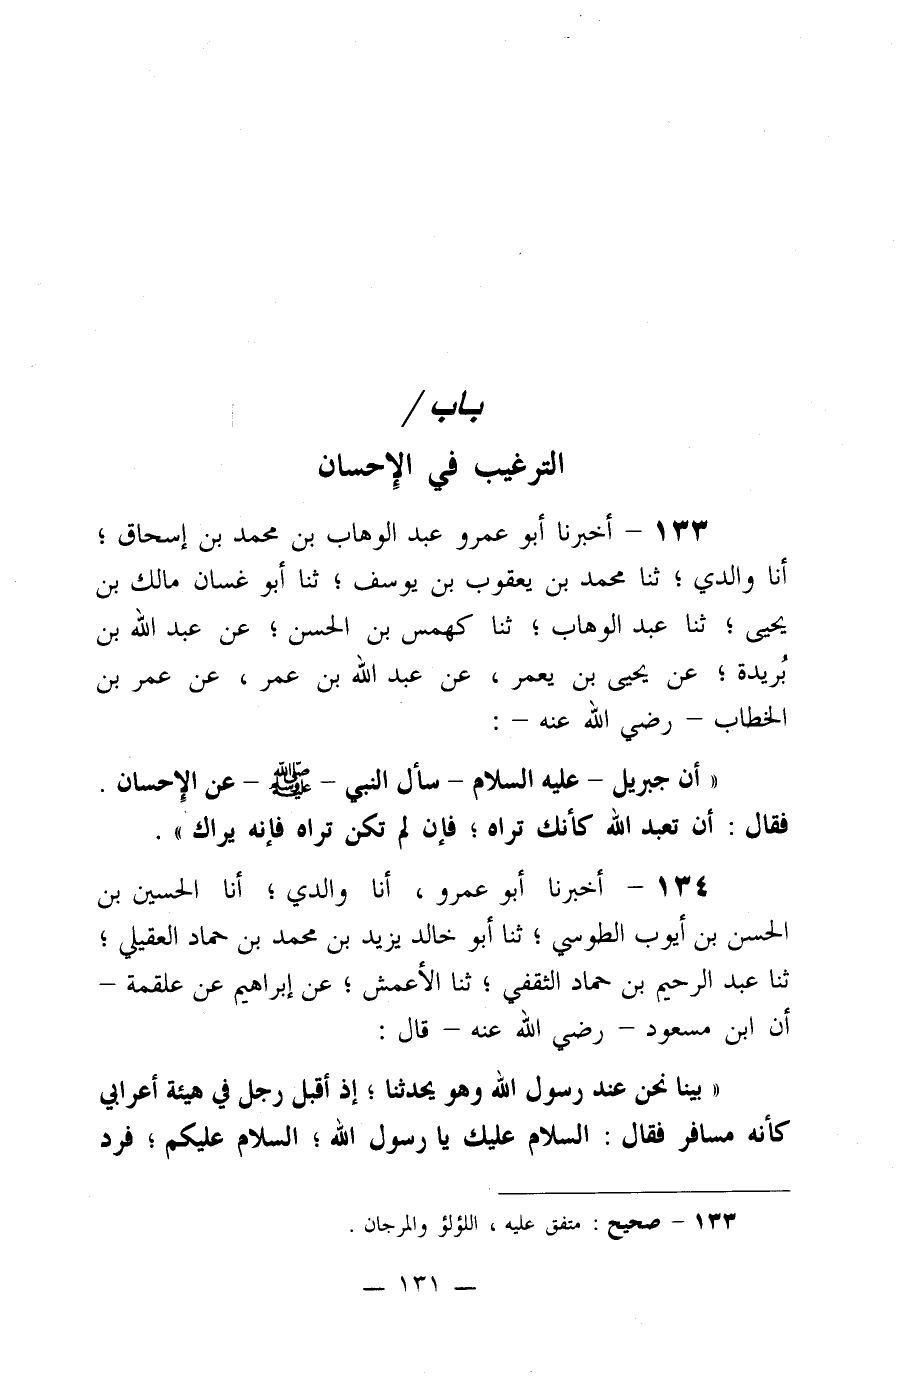 باب /
الترغيب في الإحسان
١٣٣ – أخبرنا أبو عمرو عبد الوهاب بن محمد بن إسحاق ؛
أنا والدي ؛ ثنا محمد بن يعقوب بن يوسف ؛ ثنا أبو غسان مالك بن
يحيى ؛ ثنا عبد الوهاب ؛ ثنا كهمس بن الحسن ؛ عن عبد الله بن
بُريدة ؛ عن يحيى بن يعمر ، عن عبد الله بن عمر ، عن عمر بن
الخطاب – رضي الله عنه – :
« أن جبريل – عليه السلام – سأل النبي – ﷺ – عن الإحسان .
فقال : أن تعبد الله كأنك تراه ؛ فإن لم تكن تراه فإنه يراك » .
١٣٤ – أخبرنا أبو عمرو ، أنا والدي ؛ أنا الحسين بن
الحسن بن أيوب الطوسي ؛ ثنا أبو خالد يزيد بن محمد بن حماد العقيلي ؛
ثنا عبد الرحيم بن حماد الثقفي ؛ ثنا الأعمش ؛ عن إبراهيم عن علقمة –
أن ابن مسعود – رضي الله عنه – قال :
« بينا نحن عند رسول الله وهو يحدثنا ؛ إذ أقبل رجل في هيئة أعرابي
كأنه مسافر فقال : السلام عليك يا رسول الله ؛ السلام عليكم ؛ فرد
١٣٣ – صحيح : متفق عليه ، اللؤلؤ والمرجان .
– ١٣١ –